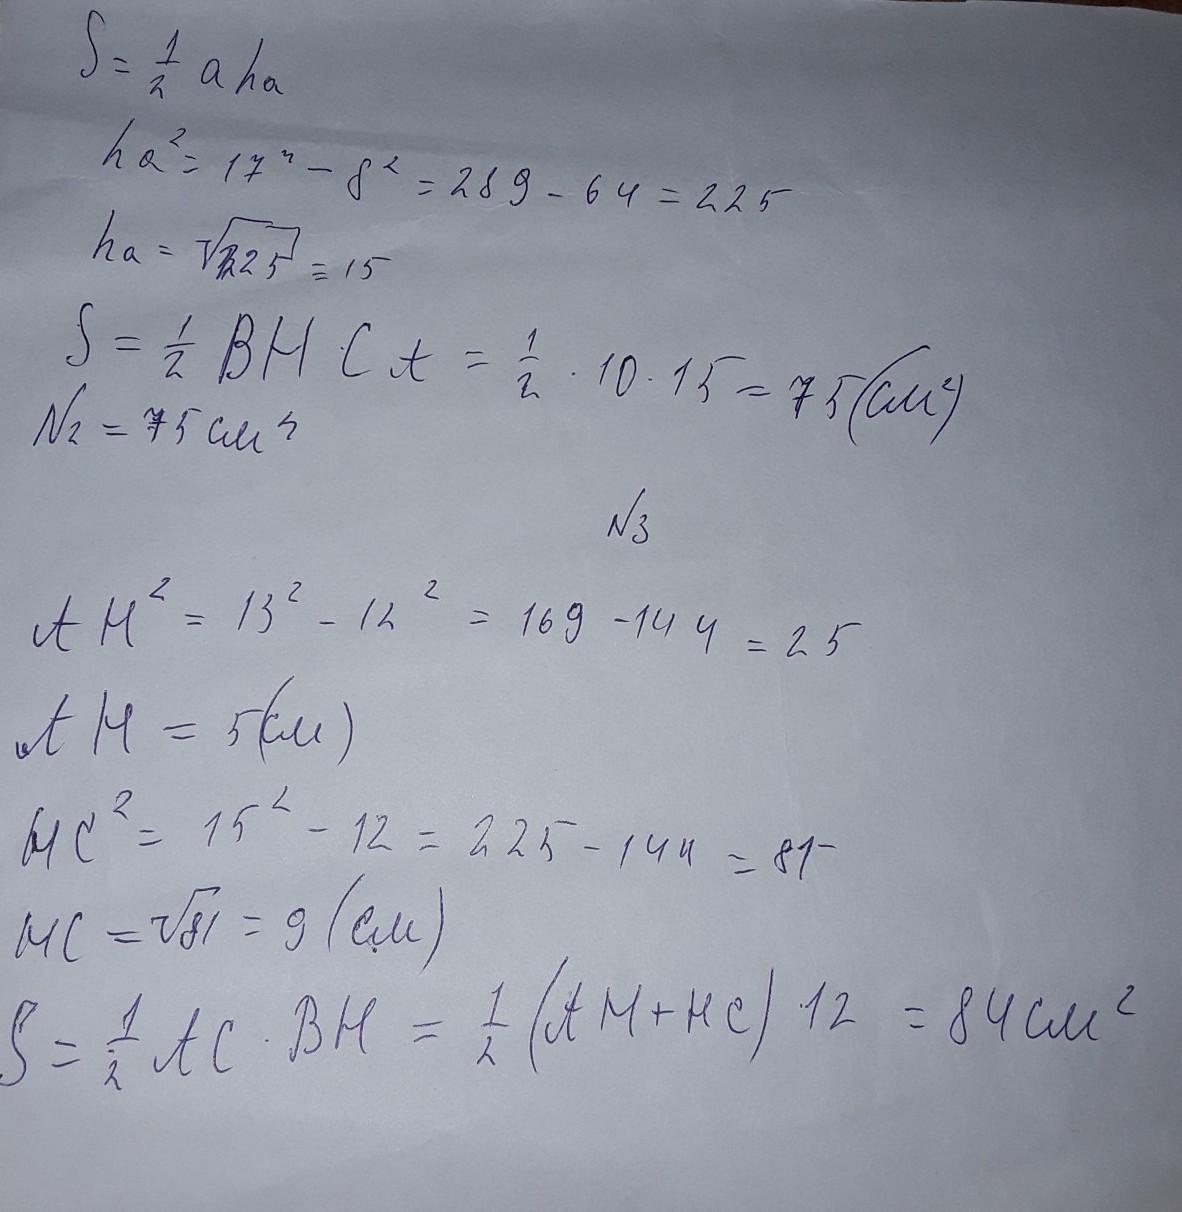 S = 1/2 a ha
ha² = 17² - 8² = 289 - 64 = 225
ha = √225 = 15
S = 1/2 BH · CA = 1/2 · 10 · 15 = 75(см²)
N2 = 75 см²
N3
AH² = 13² - 12² = 169 - 144 = 25
AH = 5(см)
HC² = 15² - 12 = 225 - 144 = 81
HC = √81 = 9 (см)
S = 1/2 AC · BH = 1/2 (AH + HC) · 12 = 84 см²